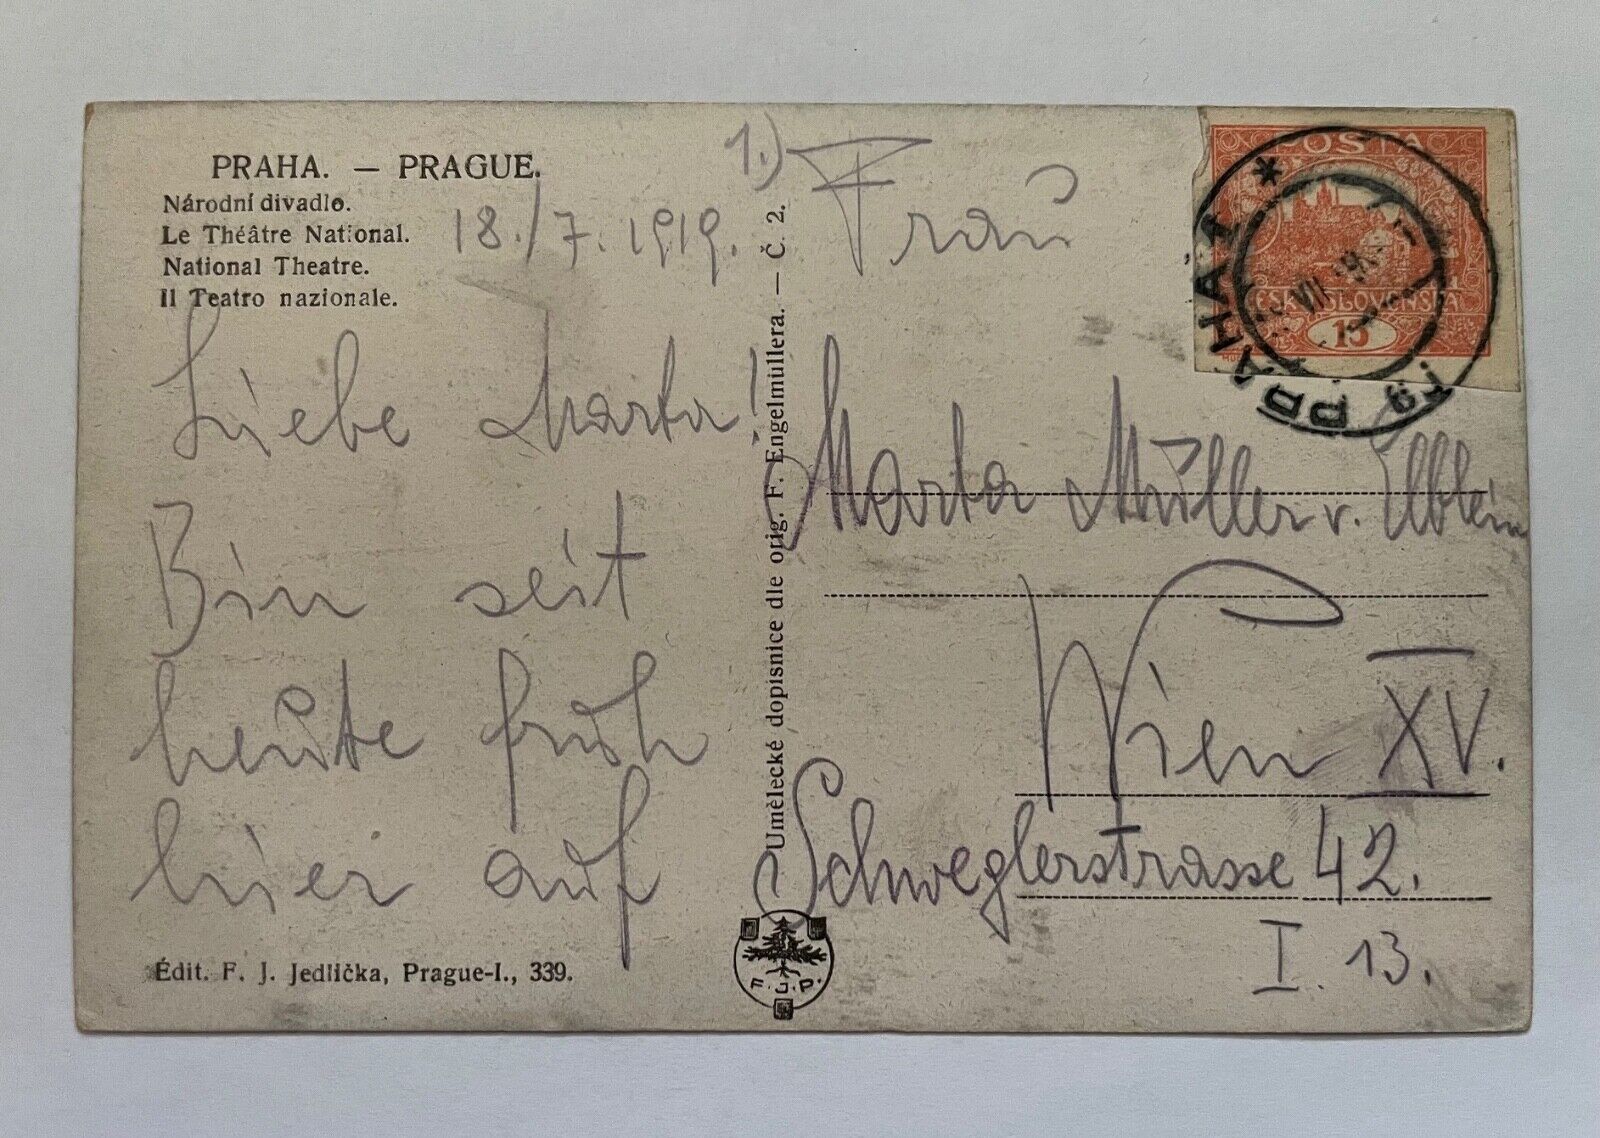 PRAHA. — PRAGUE.
Národní divadlo.
Le Théâtre National.
National Theatre.
Il Teatro nazionale.
18./7. 1919.
Liebe Marta!
Bin seit
heute früh
hier auf
Édit. F. J. Jedlička, Prague-I., 339.
Umělecké dopisnice dle orig. F. Engelmüllera. — Č. 2.
F.J.P.
1.) Frau
Marta Müller v.
Wien XV.
Schweglerstrasse 42.
I. 13.
POŠTA
ČESKOSLOVENSKÁ
15
PRAHA 1
VII 19